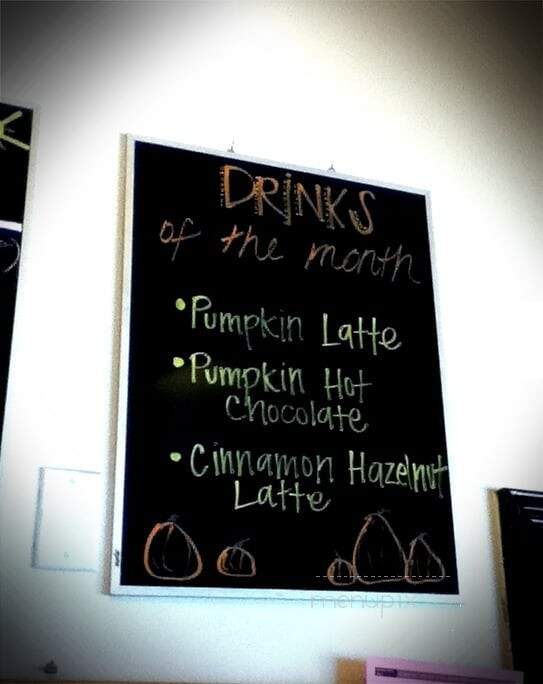 DRiNKS
of the month
• Pumpkin Latte
• Pumpkin Hot
Chocolate
• Cinnamon Hazelnut
Latte